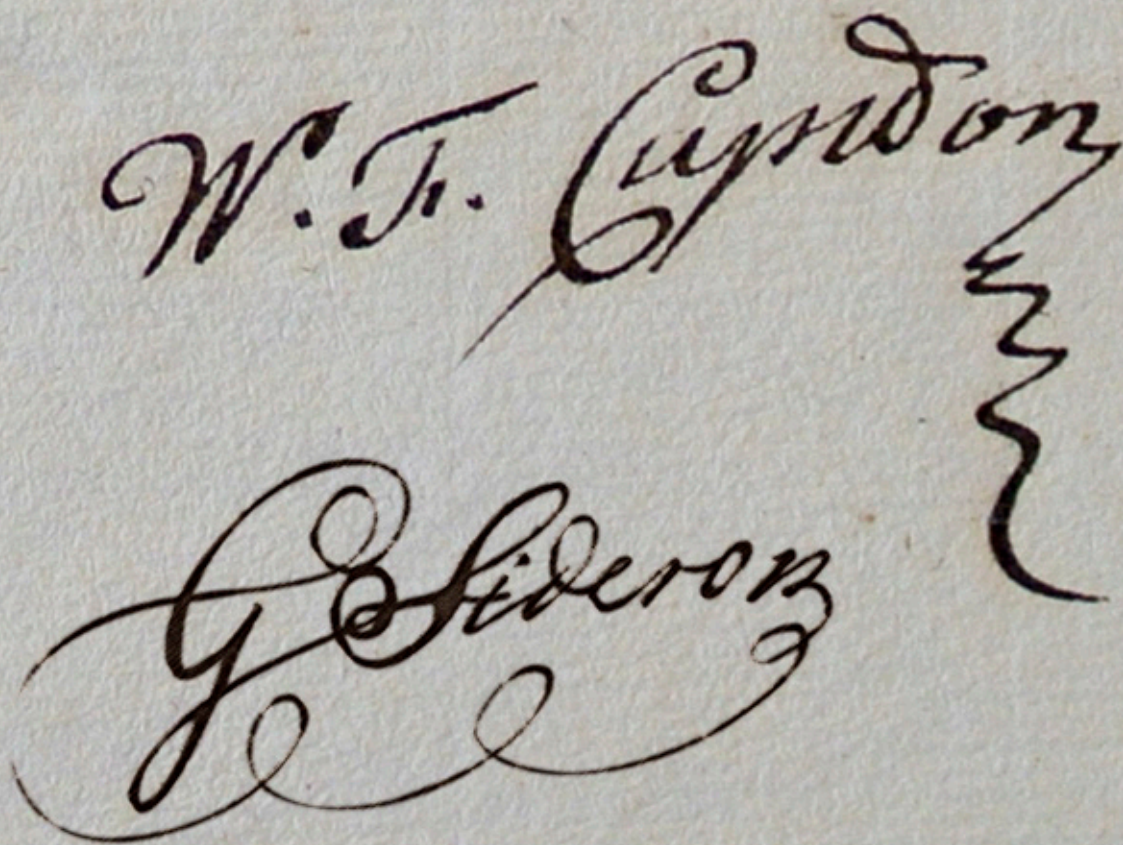 W. F. Cupidon
G Sideron